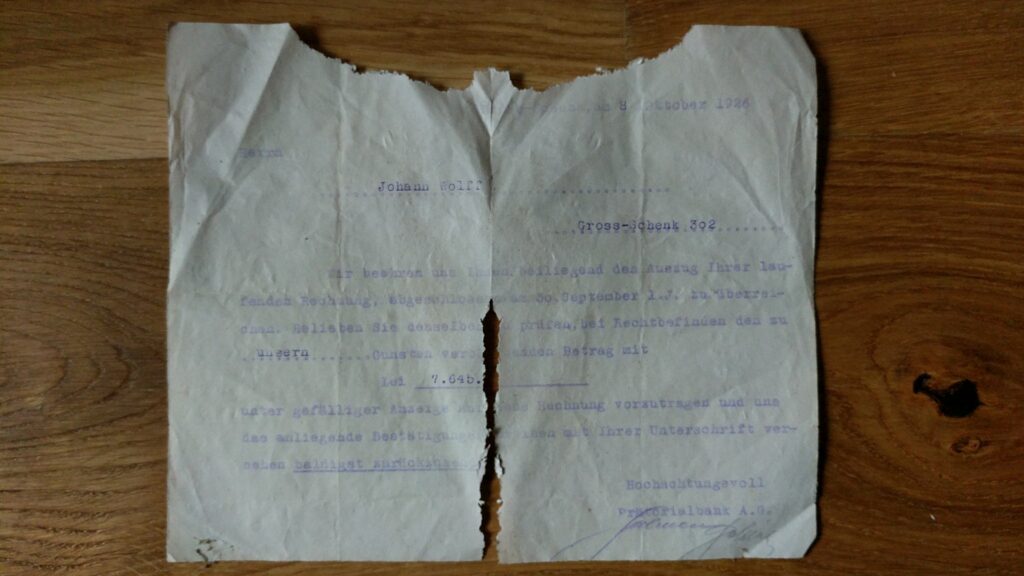 8 Oktober 1926
Herrn
Johann Wolff
Gross-Schenk 302
Wir beehren uns Ihnen beiliegend den Auszug Ihrer lau-
fenden Rechnung, abgeschlossen zum 30. September l.J. zu überrei-
chen. Belieben Sie denselben zu prüfen, bei Rechtbefinden den zu
unsern Gunsten Betrag mit
Lei 7.645.
unter gefälliger Anzeige auf Rechnung vorzutragen und uns
das anliegende mit Ihrer Unterschrift ver-
sehen
Hochachtungsvoll
Praetorialbank A.G.